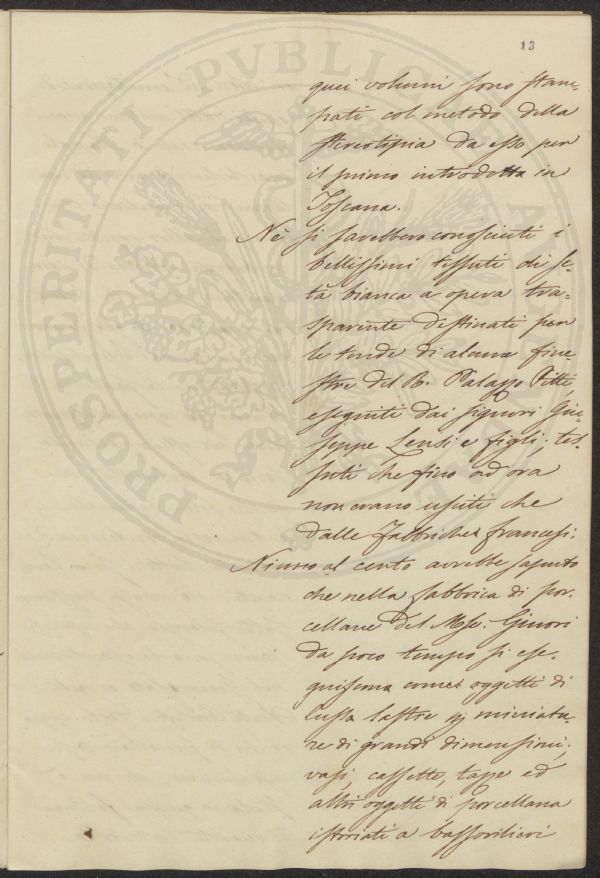 13
quei volumi sono stam-
pati col metodo della
stereotipia da esso per
il primo introdotta in
Toscana.
Nè si sarebbero conosciuti i
bellissimi tessuti di se-
ta bianca a opera tra-
sparente destinati per
le tende di alcune fine
stre del R. Palazzo Pitti,
eseguiti dai signori Giu-
seppe Lensi e figli; tes-
suti che fino ad ora
non erano usciti che
dalle Fabbriche francesi.
Niuno al certo avrebbe saputo
che nella fabbrica di por-
cellane del Mse. Ginori
da poco tempo si ese-
guiscono come oggetti di
lusso lastre miniatu-
re di grandi dimensioni,
vasi, cassette, tazze ed
altri oggetti di porcellana
istoriati a bassorilievi
PROSPERITATI PVBLICAE AVGENDAE